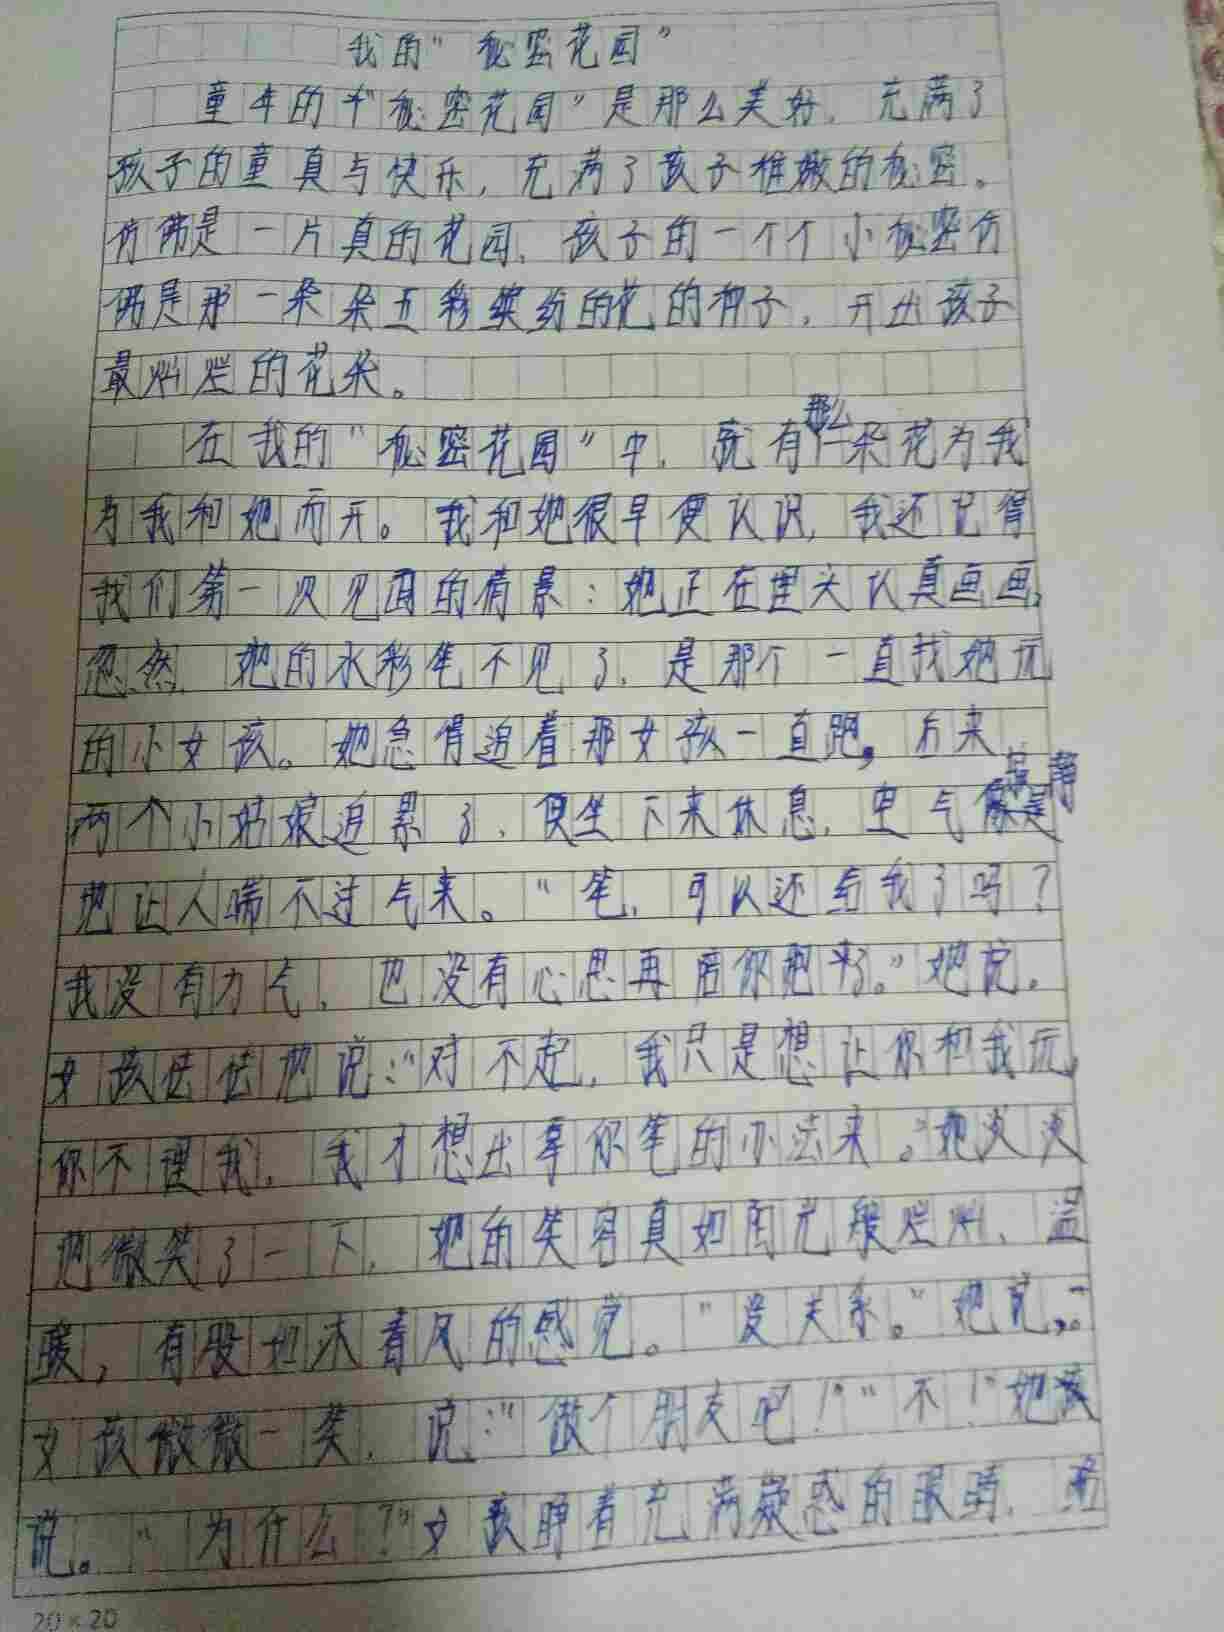 我的“秘密花园”
童年的“秘密花园”是那么美好，充满了
孩子的童真与快乐，充满了孩子稚嫩的秘密。
仿佛是一片真的花园，孩子的一个个小秘密仿
佛是那一朵朵五彩缤纷的花的种子，开出孩子
最灿烂的花朵。
在我的“秘密花园”中，就有那么一朵花为我
为我和她而开。我和她很早便认识，我还记得
我们第一次见面的情景：她正在埋头认真画画，
忽然，她的水彩笔不见了，是那个一直找她玩
的小女孩。她急得追着那女孩一直跑，后来
两个小姑娘追累了，便坐下来休息，空气寂静
地让人喘不过气来。“笔，可以还给我了吗？
我没有力气，也没有心思再陪你跑了。”她说。
女孩怯怯地说：“对不起，我只是想让你和我玩，
你不理我，我才想出拿你笔的办法来。”她淡淡
地微笑了一下，她的笑容真如阳光般烂灿、温
暖，有股如沐春风的感觉。“没关系。”她说。
女孩微微一笑，说：“做个朋友吧！”“不！”她
说。“为什么？”女孩睁着充满疑惑的眼睛，
20×20